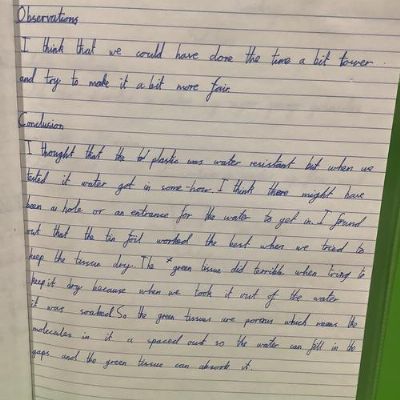 Observations
I think that we could have done the time a bit
and try to make it a bit more fair.
Conclusion
I thought that the plastic was water resistant but when we
tested it water got in some-how. I think there might have
been a hole or an entrance for the water to get in. I found
out that the tin foil worked the best when we tried to
keep the tissue dry. The green tissue did terrible when trying to
keep it dry because when we took it out of the water
it was soaked. So the green tissues are porous which means the
molecules in it a spaced out so the water can fill in the
gaps and the green tissue can absorb it.